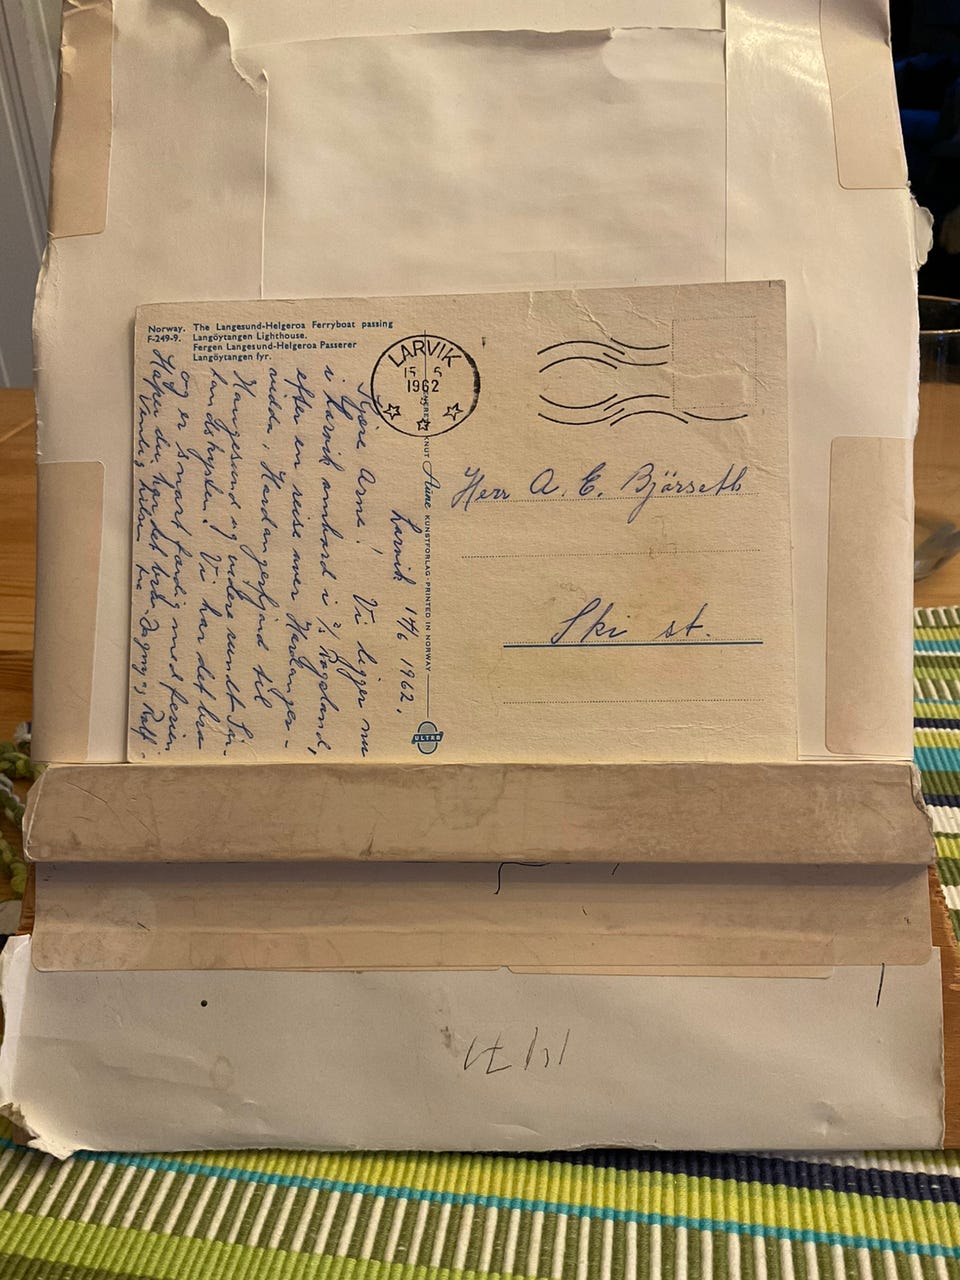 Norway. The Langesund-Helgeroa Ferryboat passing
F-249-9. Langöytangen Lighthouse.
Fergen Langesund-Helgeroa Passerer
Langöytangen fyr.
LARVIK
15 5
1962
Larvik 14/6 1962.
Kjære Arne! Vi ligger nu
i Larvik ombord i Rogaland,
efter en reise over Hardanger-
vidda, Hardangerfjord til
Haugesund og videre rundt Sør-
landskysten. Vi har det bra
og er snart færdig med ferien
Håper du har det bra.
Vennlig hilsen fra Dagny og Rolf.
KNUT Aune KUNSTFORLAG · PRINTED IN NORWAY
ULTRA
Herr A. E. Björseth
Ski st.